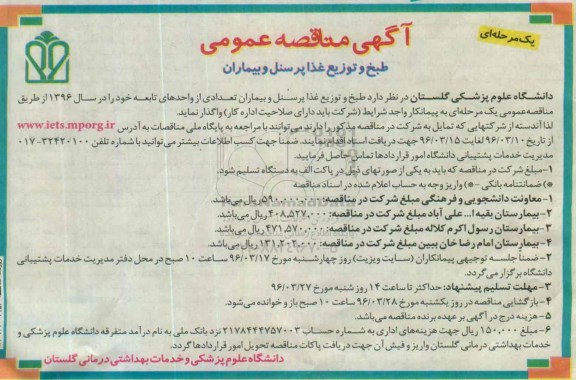 یک مرحله‌ای
آگهی مناقصه عمومی
طبخ و توزیع غذا پرسنل و بیماران
دانشگاه علوم پزشکی گلستان در نظر دارد طبخ و توزیع غذا پرسنل و بیماران تعدادی از واحدهای تابعه خود را در سال ۱۳۹۶ از طریق
مناقصه عمومی یک مرحله‌ای به پیمانکار واجد شرایط (شرکت باید دارای صلاحیت اداره کار) واگذار نماید.
لذا آندسته از شرکتهایی که تمایل به شرکت در مناقصه مذکور را دارند می‌توانند با مراجعه به پایگاه ملی مناقصات به آدرس www.iets.mporg.ir
از تاریخ ۹۶/۰۳/۱۰ لغایت ۹۶/۰۳/۱۵ جهت دریافت اسناد اقدام نمایند. ضمناً جهت کسب اطلاعات بیشتر می‌توانید با شماره تلفن ۳۲۴۲۰۱۰۰-۰۱۷
مدیریت خدمات پشتیبانی دانشگاه امور قراردادها تماس حاصل فرمایید.
۱-مبلغ شرکت در مناقصه که باید به یکی از صورتهای ذیل در پاکت الف به دستگاه تسلیم شود.
*) ضمانتنامه بانکی -*) واریز وجه به حساب اعلام شده در اسناد مناقصه
۱-معاونت دانشجویی و فرهنگی مبلغ شرکت در مناقصه: ۵۹۰.۰۰۰.۰۰۰ ریال می‌باشد.
۲-بیمارستان بقیه ا... علی آباد مبلغ شرکت در مناقصه: ۴۰۸.۵۲۷.۰۰۰ ریال می‌باشد.
۳-بیمارستان رسول اکرم کلاله مبلغ شرکت در مناقصه: ۴۷۱.۵۷۰.۰۰۰ ریال می‌باشد.
۴-بیمارستان امام رضا خان ببین مبلغ شرکت در مناقصه: ۱۳۱.۲۰۲.۰۰۰ ریال می‌باشد.
۲-ضمناً جلسه توجیهی پیمانکاران (سایت ویزیت) روز چهارشنبه مورخ ۹۶/۰۳/۱۷ ساعت ۱۰ صبح در محل دفتر مدیریت خدمات پشتیبانی
دانشگاه برگزار می‌گردد.
۳-مهلت تسلیم پیشنهاد: حداکثر تا ساعت ۱۴ روز شنبه مورخ ۹۶/۰۳/۲۷
۴-بازگشایی مناقصه در روز یکشنبه مورخ ۹۶/۰۳/۲۸ ساعت ۱۰ صبح باز و خوانده می‌شود.
۵-هزینه درج در آگهی بر عهده برنده مناقصه می‌باشد.
۶-مبلغ ۱۵۰.۰۰۰ ریال جهت هزینه‌های اداری به شماره حساب ۲۱۷۸۴۴۴۷۵۷۰۰۳ نزد بانک ملی به نام درآمد متفرقه دانشگاه علوم پزشکی و
خدمات بهداشتی درمانی گلستان واریز و فیش آن جهت دریافت پاکات مناقصه تحویل امور قراردادها گردد.
دانشگاه علوم پزشکی و خدمات بهداشتی درمانی گلستان